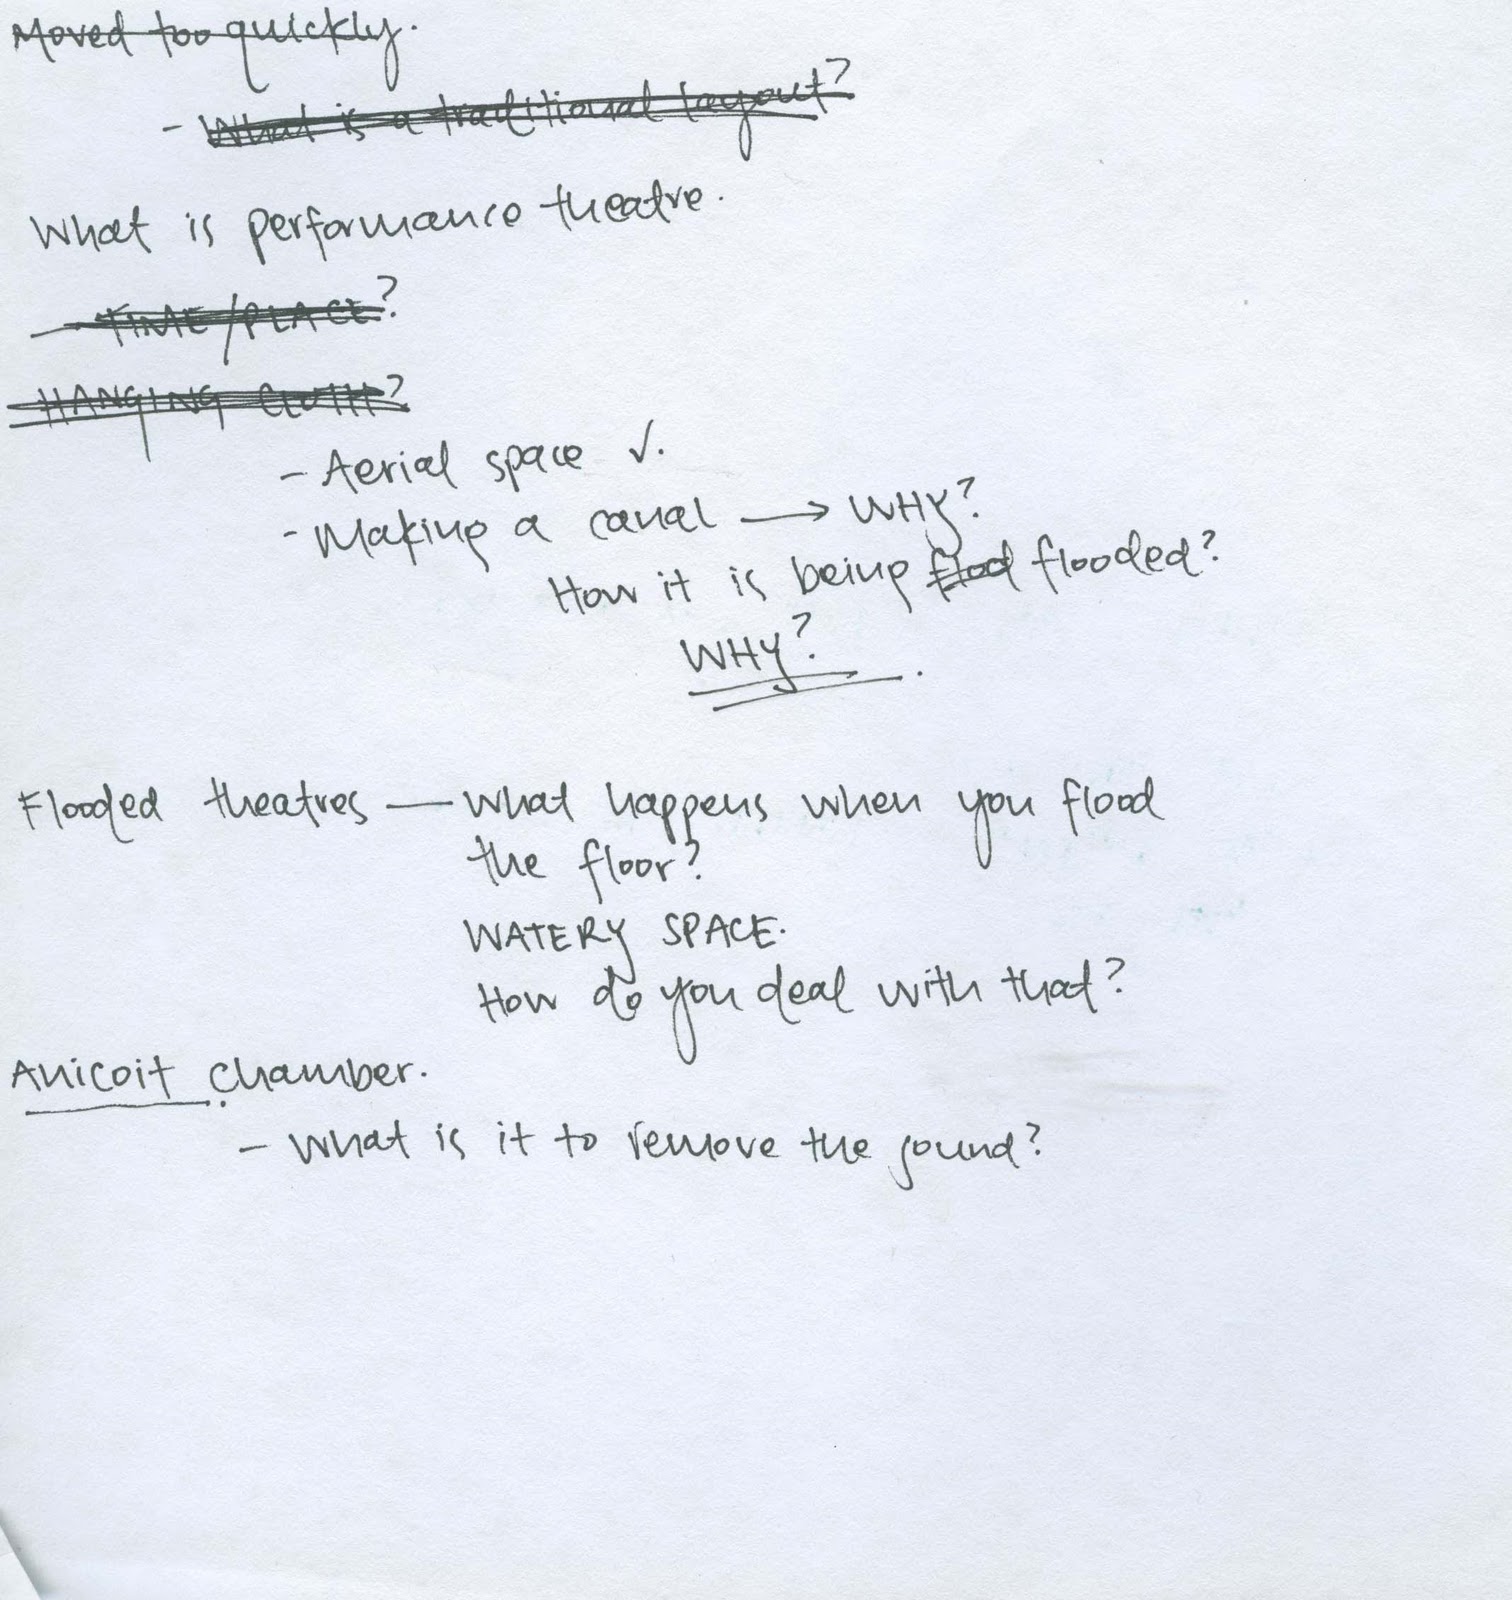 Moved too quickly.
- What is a traditional layout?
What is performance theatre.
→ TIME/PLACE?
HANGING CLOTH?
- Aerial space ✓.
- Making a canal → WHY?
How it is being flod flooded?
WHY?
Flooded theatres — What happens when you flood
the floor?
WATERY SPACE.
How do you deal with that?
Anicoit chamber.
- What is it to remove the sound?